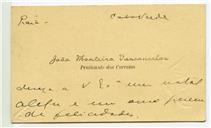 Praia Cabo Verde
João Monteiro Vasconcelos
Praticante dos Correios
deseja a V. Ex.ª um natal
alegre e um ano
de felicidades.